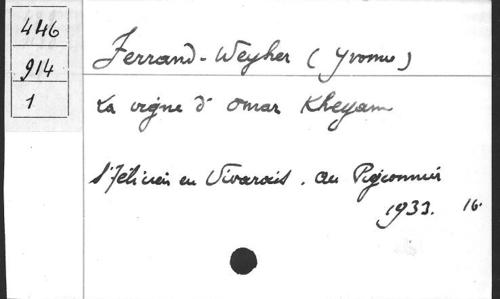 446
914
1
Ferrand-Weyher (Yvonne)
La vigne d'Omar Kheyam
St Félicien en Vivarais. Au Pigeonnier
1933. 16.